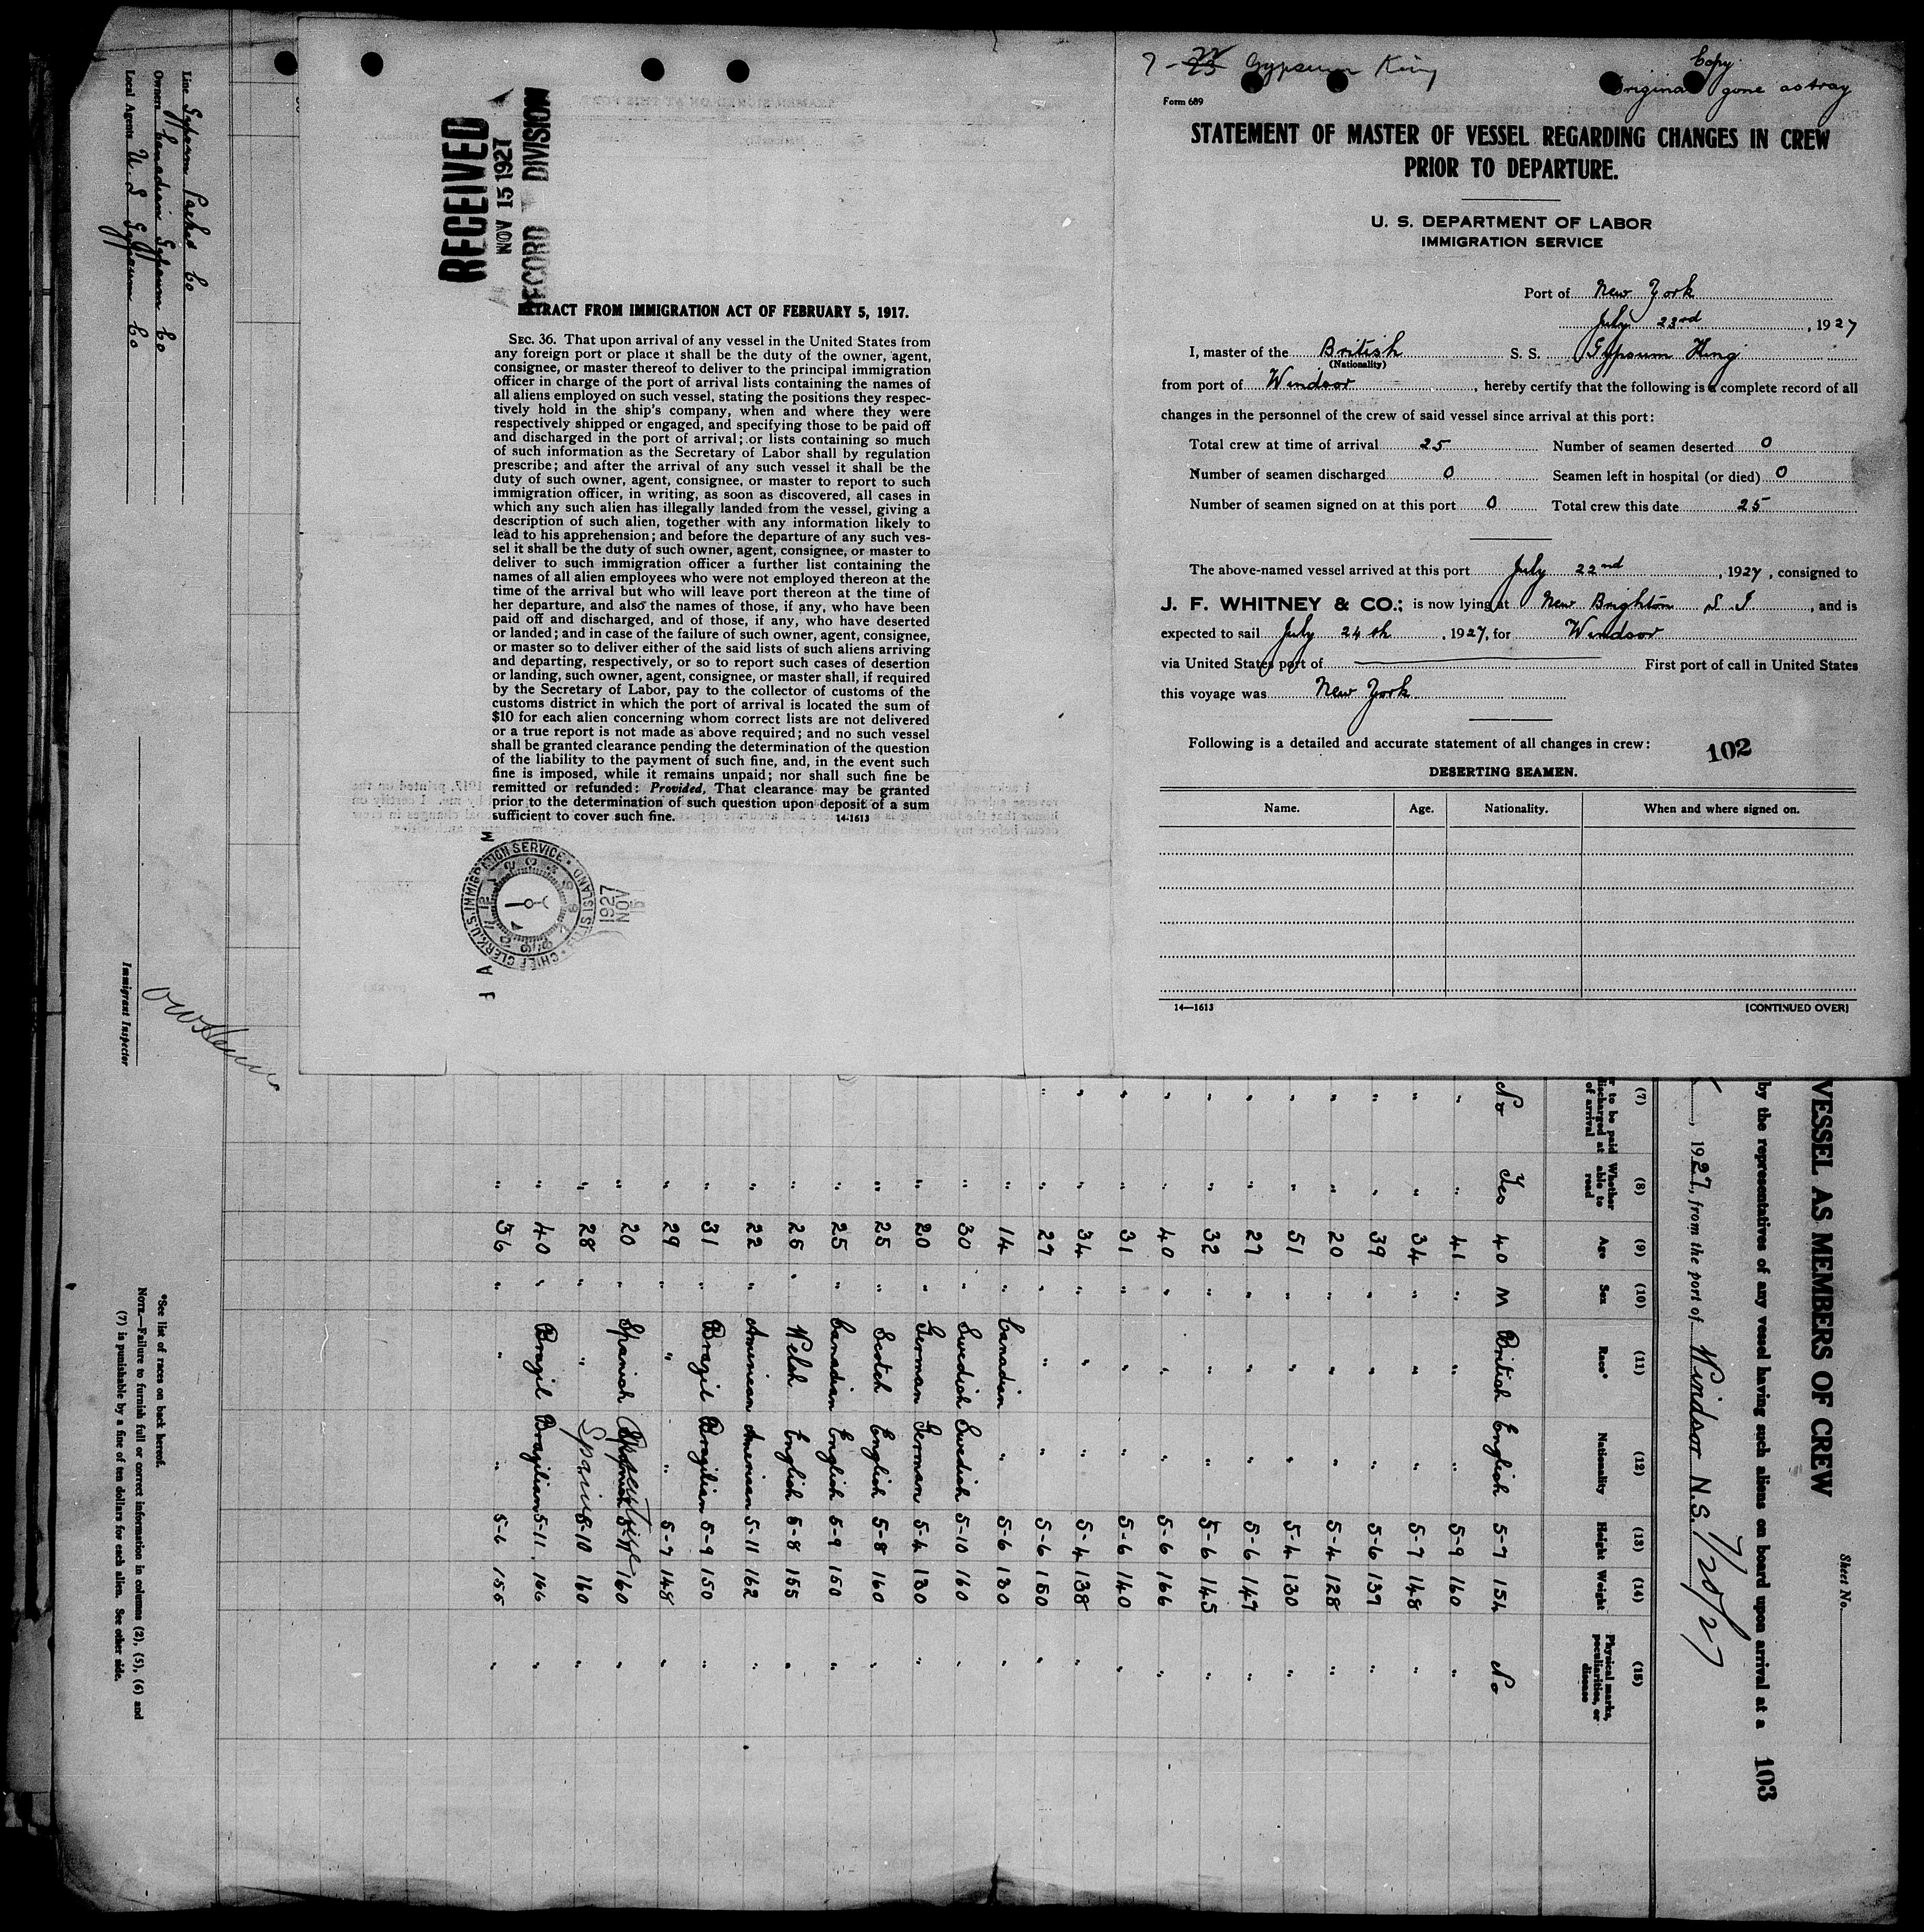 7-22 Gypsum King
Copy
Original gone astray
Form 689
STATEMENT OF MASTER OF VESSEL REGARDING CHANGES IN CREW
PRIOR TO DEPARTURE.
U. S. DEPARTMENT OF LABOR
IMMIGRATION SERVICE
Port of New York
July 23rd, 1927
I, master of the British S. S. Gypsum King
(Nationality)
from port of Windsor, hereby certify that the following is a complete record of all
changes in the personnel of the crew of said vessel since arrival at this port:
Total crew at time of arrival 25 Number of seamen deserted 0
Number of seamen discharged 0 Seamen left in hospital (or died) 0
Number of seamen signed on at this port 0 Total crew this date 25
The above-named vessel arrived at this port July 22nd, 1927, consigned to
J. F. WHITNEY & CO.; is now lying at New Brighton S. I, and is
expected to sail July 24th, 1927, for Windsor
via United States port of First port of call in United States
this voyage was New York
Following is a detailed and accurate statement of all changes in crew: 102
DESERTING SEAMEN.
Name. Age. Nationality. When and where signed on.
14—1613 [CONTINUED OVER]
RECEIVED
NOV 15 1927
RECORD DIVISION
EXTRACT FROM IMMIGRATION ACT OF FEBRUARY 5, 1917.
SEC. 36. That upon arrival of any vessel in the United States from
any foreign port or place it shall be the duty of the owner, agent,
consignee, or master thereof to deliver to the principal immigration
officer in charge of the port of arrival lists containing the names of
all aliens employed on such vessel, stating the positions they respec-
tively hold in the ship's company, when and where they were
respectively shipped or engaged, and specifying those to be paid off
and discharged in the port of arrival; or lists containing so much
of such information as the Secretary of Labor shall by regulation
prescribe; and after the arrival of any such vessel it shall be the
duty of such owner, agent, consignee, or master to report to such
immigration officer, in writing, as soon as discovered, all cases in
which any such alien has illegally landed from the vessel, giving a
description of such alien, together with any information likely to
lead to his apprehension; and before the departure of any such ves-
sel it shall be the duty of such owner, agent, consignee, or master to
deliver to such immigration officer a further list containing the
names of all alien employees who were not employed thereon at the
time of the arrival but who will leave port thereon at the time of
her departure, and also the names of those, if any, who have been
paid off and discharged, and of those, if any, who have deserted
or landed; and in case of the failure of such owner, agent, consignee,
or master so to deliver either of the said lists of such aliens arriving
and departing, respectively, or so to report such cases of desertion
or landing, such owner, agent, consignee, or master shall, if required
by the Secretary of Labor, pay to the collector of customs of the
customs district in which the port of arrival is located the sum of
$10 for each alien concerning whom correct lists are not delivered
or a true report is not made as above required; and no such vessel
shall be granted clearance pending the determination of the question
of the liability to the payment of such fine, and, in the event such
fine is imposed, while it remains unpaid; nor shall such fine be
remitted or refunded: Provided, That clearance may be granted
prior to the determination of such question upon deposit of a sum
sufficient to cover such fine. 14-1613
CHIEF CLERK, U.S. IMMIGRATION SERVICE • ELLIS ISLAND
1927
NOV
Sheet No.
VESSEL AS MEMBERS OF CREW
by the representatives of any vessel having such aliens on board upon arrival at a 103
, 1927, from the port of Windsor N.S. 7/20/27
(7) (8) (9) (10) (11) (12) (13) (14) (15)
to be paid
discharged at
of arrival
Whether
able to
read
Age Sex Race* Nationality Height Weight
Physical marks,
peculiarities, or
disease
No Yes 40 M British English 5-7 154 No
" " 41 " " " 5-9 160 "
" " 34 " " " 5-7 148 "
" " 39 " " " 5-6 139 "
" " 20 " " " 5-4 128 "
" " 51 " " " 5-4 130 "
" " 27 " " " 5-6 149 "
" " 32 " " " 5-6 145 "
" " 40 " " " 5-6 166 "
" " 31 " " " 5-6 140 "
" " 34 " " " 5-4 138 "
" " 27 " " " 5-6 150 "
" 14 " Canadian " 5-6 130 "
" 30 " Swedish Swedish 5-10 160 "
" 20 " German German 5-4 130 "
" 25 " Scotch English 5-8 160 "
" 25 " Canadian English 5-9 150 "
" 25 " Welsh English 5-8 155 "
" 22 " American American 5-11 162 "
" 31 " Brazil Brazilian 5-9 150 "
" 29 " " " 5-7 148 "
" 20 " Spanish 160 "
" 28 " " Spain 5-10 160 "
" 40 " Brazil Brazilian 5-11 166 "
" 36 " " " 5-6 155 "
Line Gypsum Packet Co
Owners Canadian Gypsum Co
Local Agents U S Gypsum Co
Immigrant Inspector
*See list of races on back hereof.
NOTE.—Failure to furnish full or correct information in columns (2), (5), (6) and
(7) is punishable by a fine of ten dollars for each alien. See other side.